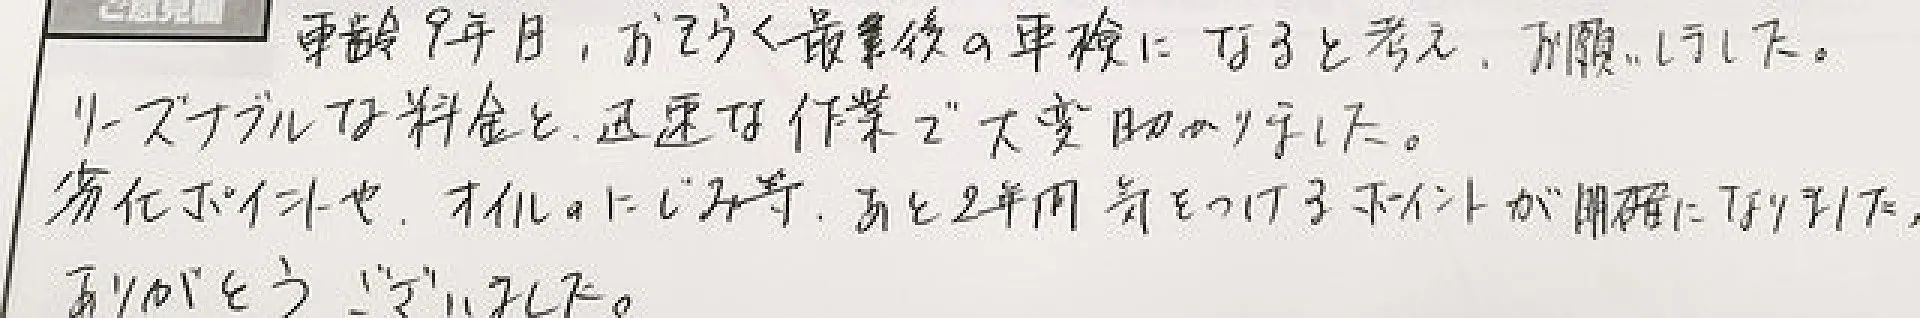 ご意見欄
車齢9年目、おそらく最後の車検になると考え、お願いしました。
リーズナブルな料金と、迅速な作業で大変助かりました。
劣化ポイントや、オイルのにじみ等、あと2年間気をつけるポイントが明確になりました。
ありがとうございました。